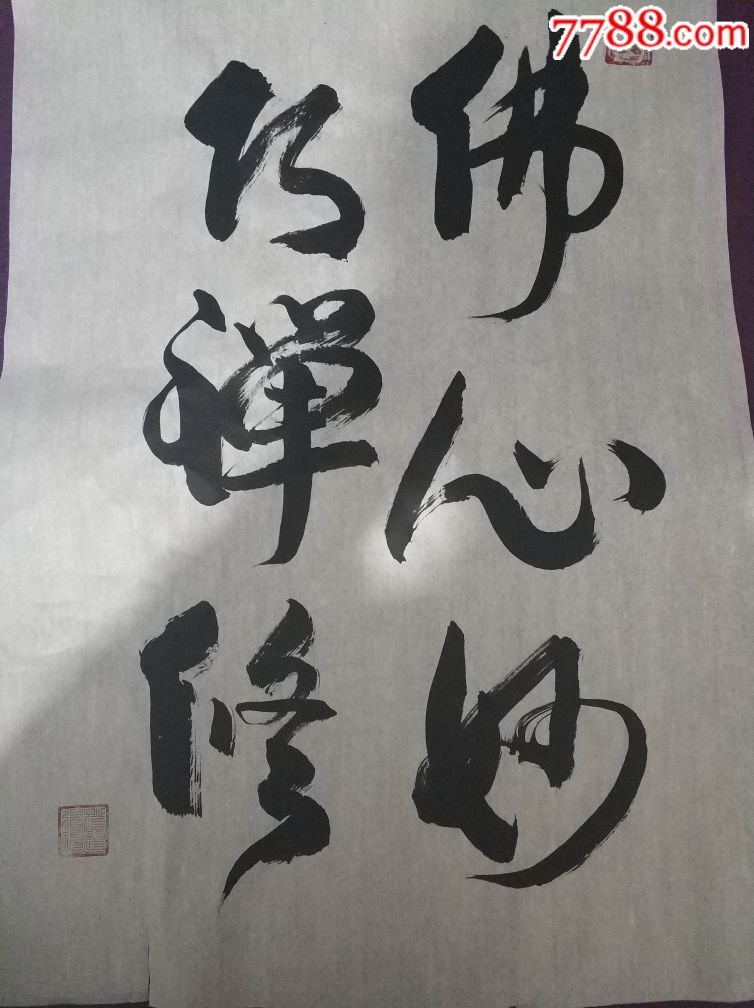 7788.com
佛心妙
禪修